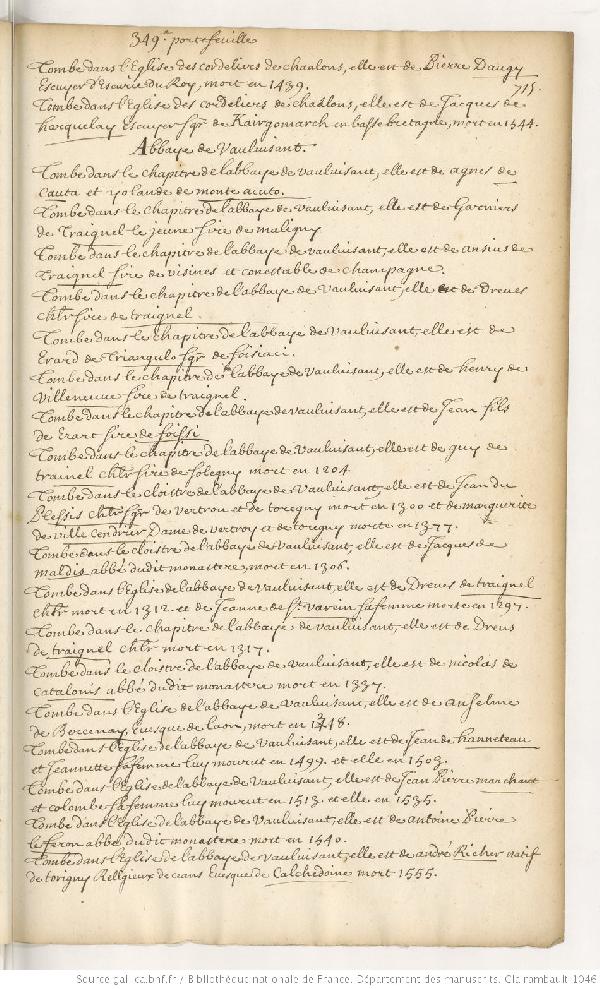 349.e portefeuille
Tombe dans l'Eglise des cordeliers de chaalons, elle est de Pierre Daugy
Escuyer d'Escurie du Roy, mort en 1439.
715.
Tombe dans l'Eglise des cordeliers de chaalons, elle est de Jacques de
kerquelay Escuyer sgr. de Kairgomarch en basse bretagne, mort en 1544.
Abbaye de Vauluisant.
Tombe dans le chapitre de l'abbaye de vauluisant, elle est de agnes de
cauta et yolande de monte acuto.
Tombe dans le chapitre de l'abbaye de vauluisant, elle est de Garniers
de Traignel le jeune sire de maligny
Tombe dans le chapitre de l'abbaye de vauluisant, elle est de ansius de
Traignel sire de visines et conestable de champagne.
Tombe dans le chapitre de l'abbaye de vauluisant, elle est de Dreues
chlr sire de traignel.
Tombe dans le chapitre de l'abbaye de vauluisant, elle est de
Erard de Triangulo sgr. de foisiaci.
Tombe dans le chapitre de l'abbaye de vauluisant, elle est de henry de
Villeneuue sire de traignel.
Tombe dans le chapitre de l'abbaye de vauluisant, elle est de Jean fils
de Erart sire de foissi
Tombe dans le chapitre de l'abbaye de vauluisant, elle est de guy de
trainel chlr sire de soligny mort en 1204
Tombe dans le cloistre de l'abbaye de vauluisant, elle est de Jean du
Plessis chlr sgr. de vertrou et de toregny mort en 1300 et de marguerite
de ville Cendrier Dame de vertroy et de torigny morte en 1377.
Tombe dans le cloistre de l'abbaye de vauluisant, elle est de Jacques de
maldis abbé dudit monastere, mort en 1306.
Tombe dans l'Eglise de l'abbaye de vauluisant, elle est de Dreues de traignel
chlr mort en 1312. et de Jeanne de St. varein sa femme morte en 1297.
Tombe dans le chapitre de l'abbaye de vauluisant, elle est de Dreus
de traignel chlr mort en 1317.
Tombe dans le cloistre de l'abbaye de vauluisant, elle est de nicolas de
catalonis abbé dudit monastere mort en 1337.
Tombe dans l'Eglise de l'abbaye de vauluisant, elle est de anselme
de Beccenay, euesque de laon, mort en 1248.
Tombe dans l'eglise de l'abbaye de Vauluisant, elle est de Jean de hanneteau
et Jeannette sa femme luy mourut en 1499. et elle en 1503.
Tombe dans l'Eglise de l'abbaye de Vauluisant, elle est de Jean Pierre marchant
et colombe sa femme luy mourut en 1513. et elle en 1535.
Tombe dans l'Eglise de l'abbaye de Vauluisant, elle est de antoine Pierre
le feron abbé dudit monastere, mort en 1540.
Tombe dans l'Eglise de l'abbaye de vauluisant, elle est de andré Richer natif
de torigny Religieux de ceans Euesque de Calchedoine mort 1555.
Source gallica.bnf.fr / Bibliothèque nationale de France. Département des manuscrits. Clairambault 1046